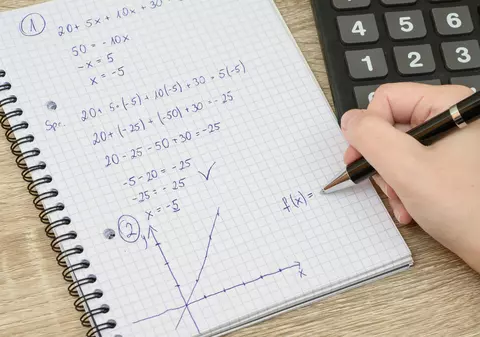 1
20 + 5x + 10x + 30
50 = -10x
-x = 5
x = -5
Spr. 20 + 5·(-5) + 10(-5) + 30 = 5(-5)
20 + (-25) + (-50) + 30 = -25
20 - 25 - 50 + 30 = -25
-5 - 20 = -25
-25 = -25 ✓
x = -5
2
y
f(x) =
x
4 5 6
1 2 3